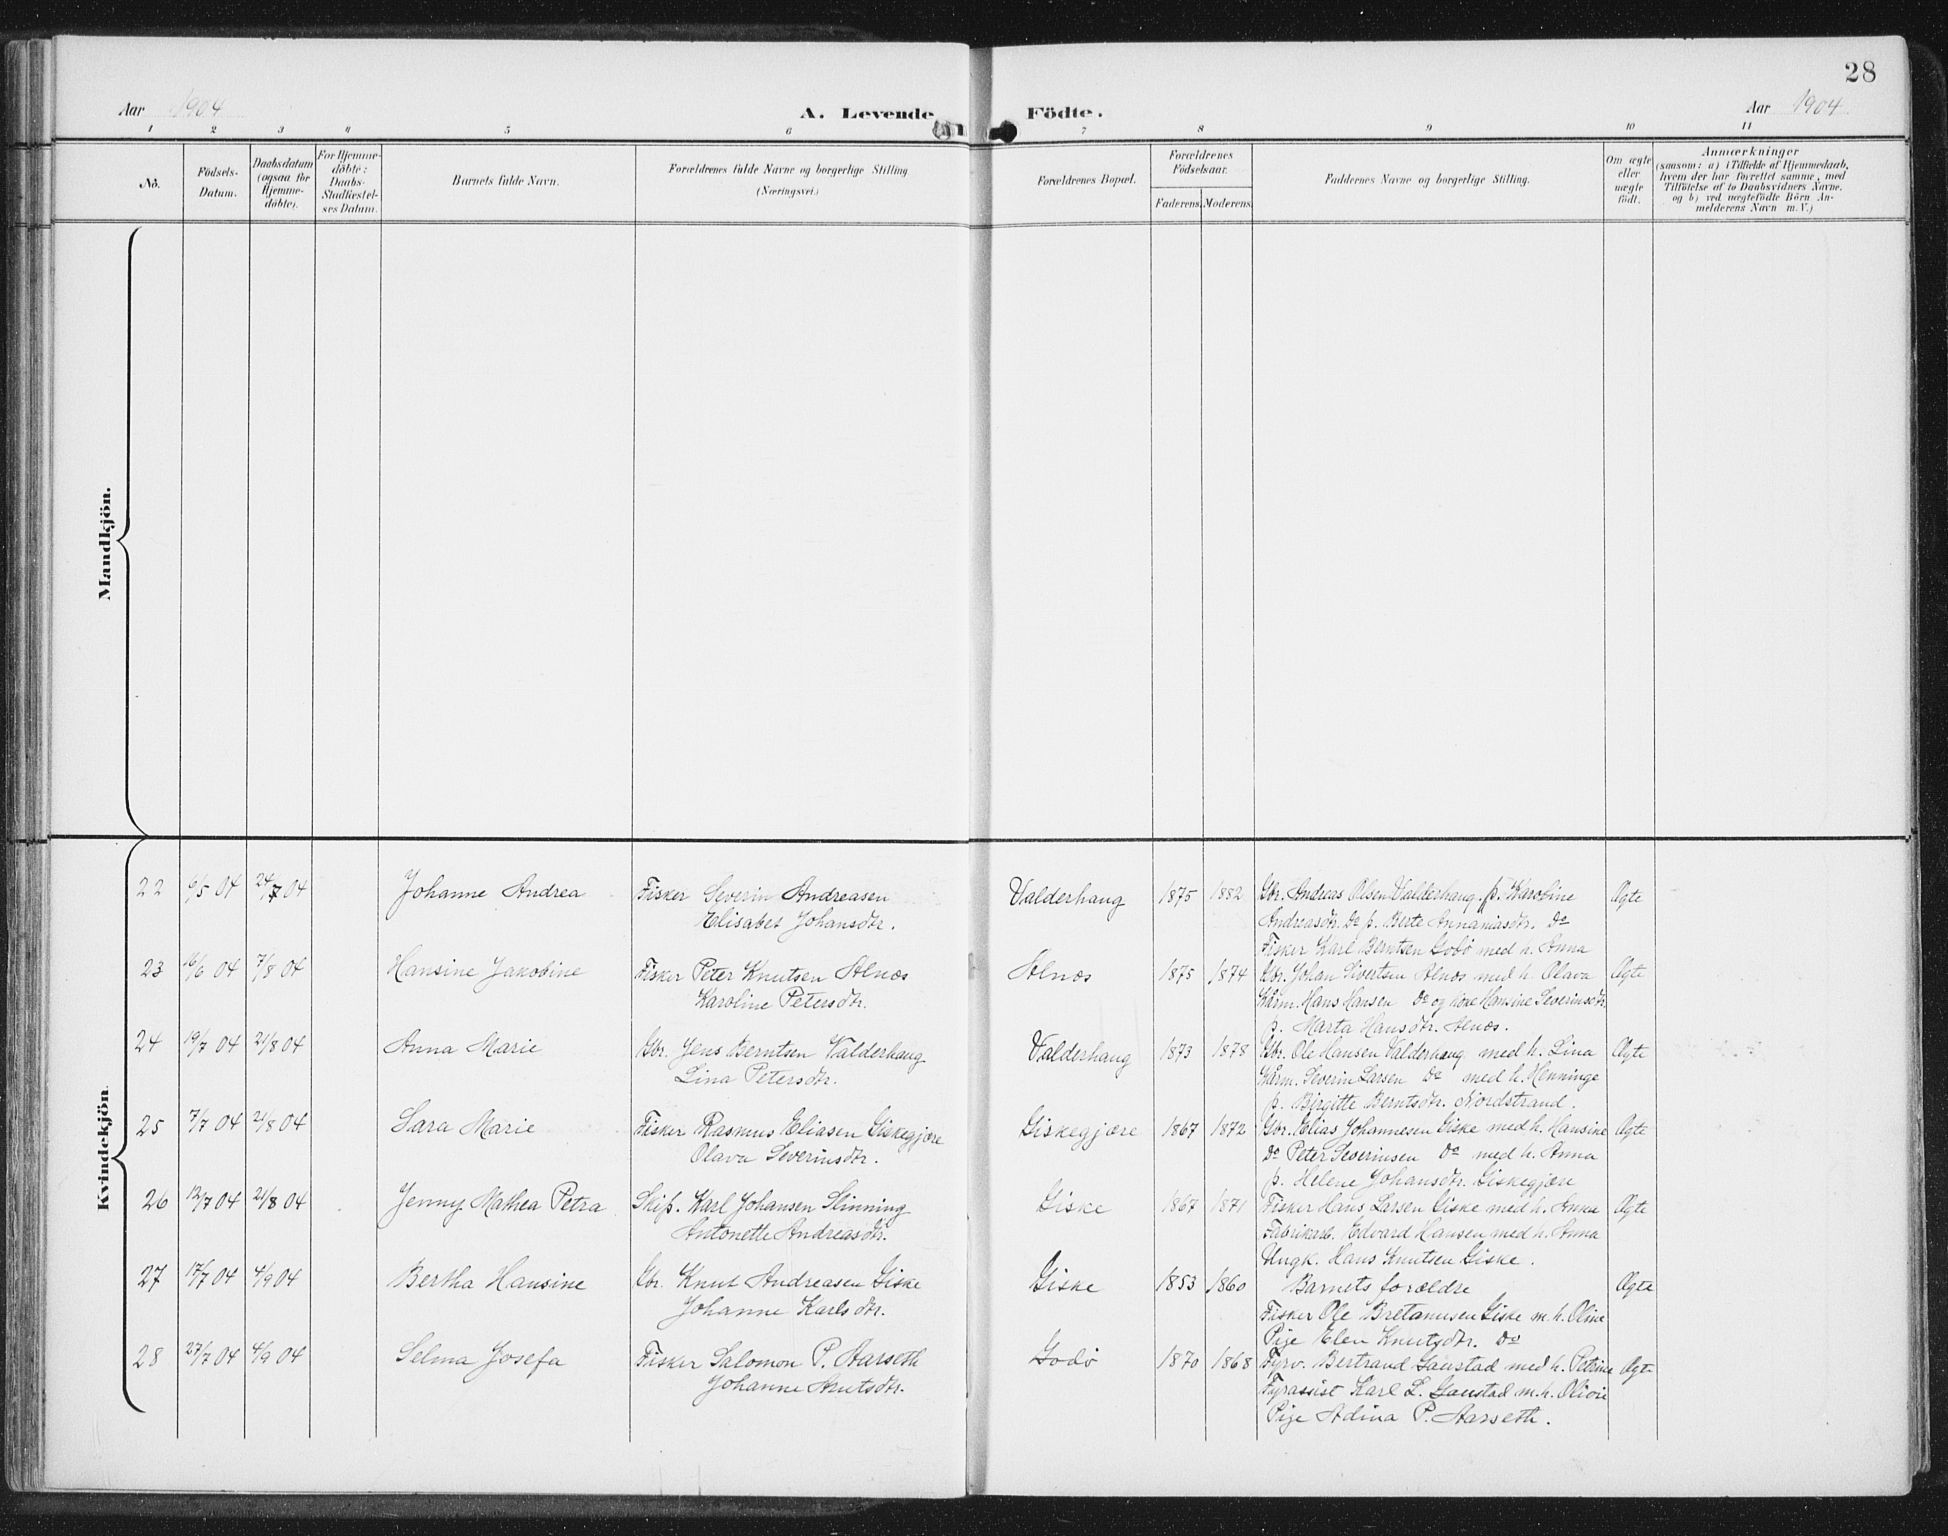 28
Aar 1904 A. Levende Födte. Aar 1904
1 2 3 4 5 6 7 8 9 10 11
Nö. Födsels-Datum. Daabsdatum (ogsaa for Hjemme-döbte). For Hjemme-döbte: Daabs-Stadfæstel-ses Datum. Barnets fulde Navn. Forældrenes fulde Navne og borgerlige Stilling (Næringsvei.) Forældrenes Bopæl. Forældrenes Födselsaar. Faderens. Moderens. Faddernes Navne og borgerlige Stilling. Om ægte eller uægte födt. Anmærkninger (saasom: a) i Tilfælde af Hjemmedaab, hvem der har forrettet samme, med Tilföielse af to Daabsvidners Navne, og b) ved uægtefödte Börn An-melderens Navn m. V.)
Mandkjön.
Kvindekjön
22 6/5 04 24/7 04 Johanne Andrea Fisker Severin Andreasen Valderhaug 1875 1882 Gbr. Andreas Olsen Valderhaug. p. Karoline Ægte
Elisabet Johansdtr. Andreasdtr. Do p. Berte Annaniasdtr. Do
Fisker Karl Berntsen Godö med h. Anna
23 16/6 04 7/8 04 Hansine Jakobine Fisker Peter Knutsen Alnæs Alnæs 1875 1874 Gbr. Johan Sivertsen Alnæs med h. Olava Ægte
Karoline Petersdtr. Kårm. Hans Hansen Do og kone Hansine Severinsdtr.
p. Marta Hansdtr. Alnæs.
24 19/7 04 21/8 04 Anna Marie Gbr. Jens Berntsen Valderhaug Valderhaug 1873 1878 Gbr. Ole Hansen Valderhaug med h. Lina Ægte
Lina Petersdtr. Kårm. Severin Larsen Do med h. Henninge
p. Birgitte Berntsdtr. Nordstrand.
25 7/7 04 21/8 04 Sara Marie Fisker Rasmus Eliasen Giskegjære Giskegjære 1867 1872 Gbr. Elias Johannesen Giske med h. Hansine Ægte
Olava Severinsdtr. Do Peter Severinsen Do med h. Anna
p. Helene Johansdtr. Giskegjære
26 12/7 04 21/8 04 Jenny Mathea Petra Skip. Karl Johansen Slinning Giske 1867 1871 Fisker Hans Larsen Giske med h. Anna Ægte
Antonette Andreasdtr. Fabrikarb. Edvard Hansen med h. Anna
Ungk. Hans Knutsen Giske.
27 17/7 04 4/9 04 Bertha Hansine Gbr. Knut Andreasen Giske Giske 1853 1860 Barnets forældre Ægte
Johanne Karlsdtr. Fisker Ole Bretanusen Giske m. h. Oline
Pige Elen Knutsdtr. Do
28 27/7 04 4/9 04 Selma Josefa Fisker Salomon P. Aarseth Godö 1870 1868 Fyrv. Bertrand Gaustad med h. Petrine Ægte
Johanne Knutsdtr. Fyrassist Karl L. Gaustad m. h. Olivie
Pige Adina P. Aarseth.